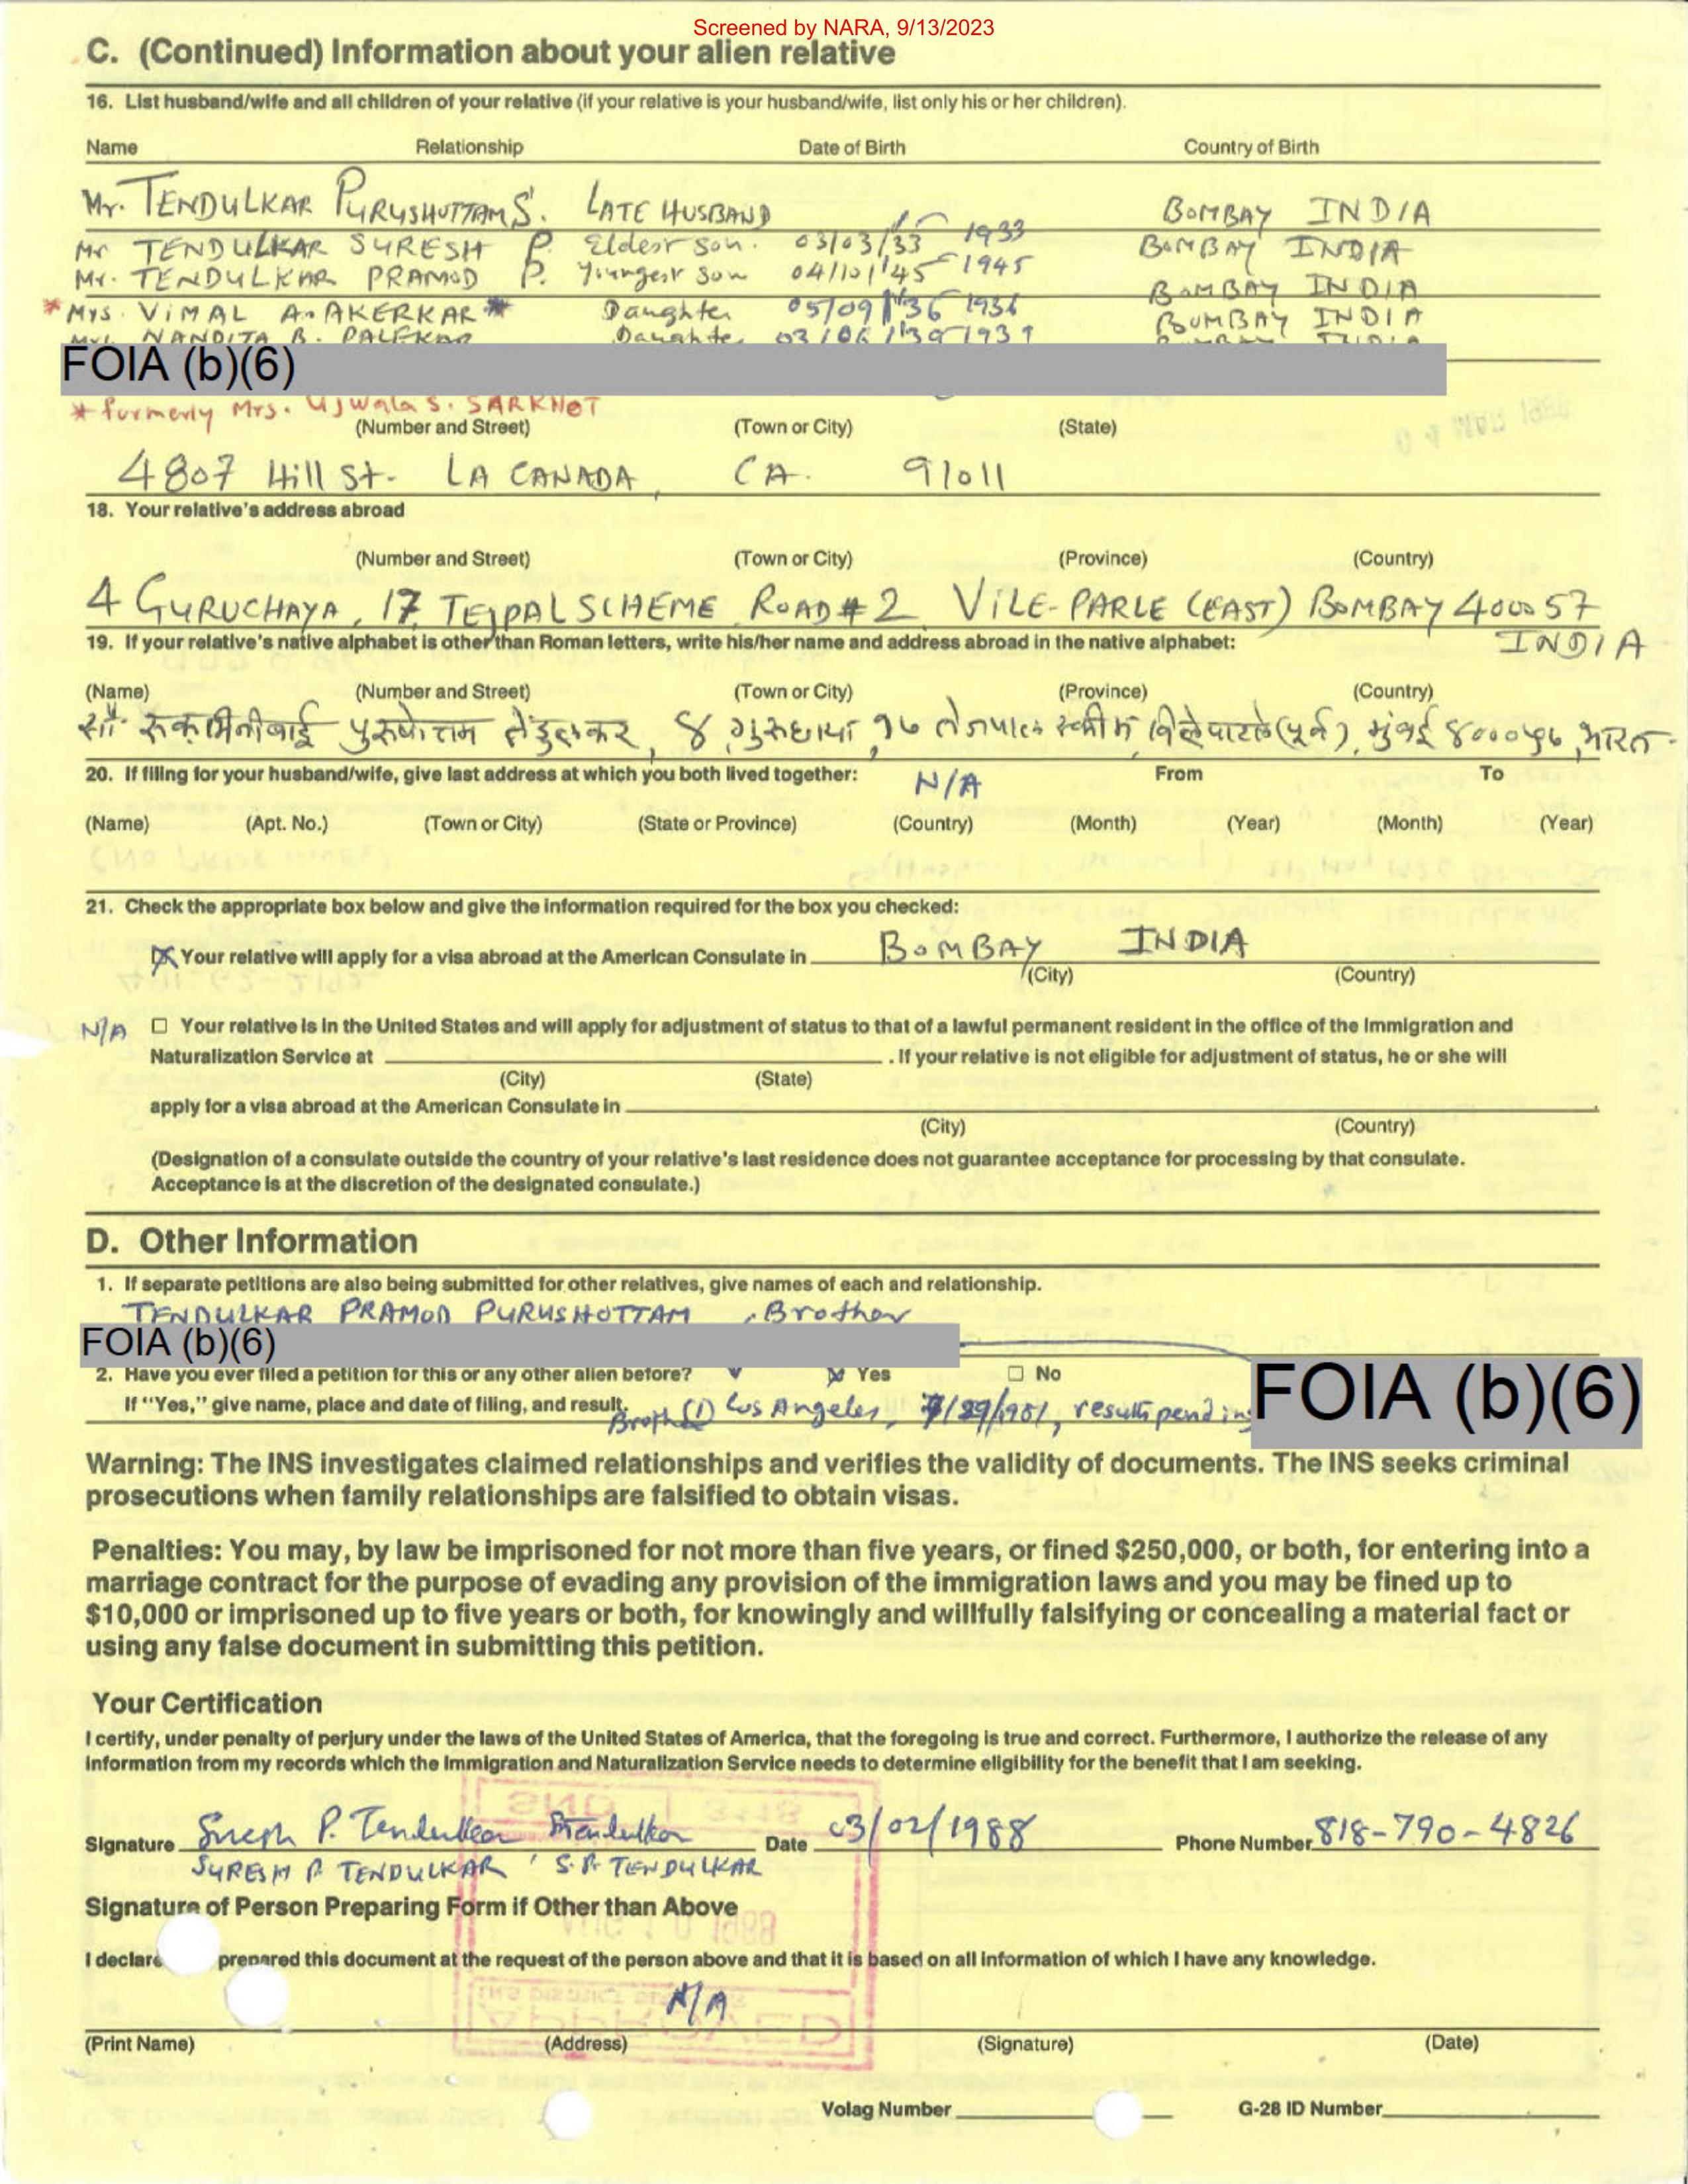 Screened by NARA, 9/13/2023
C. (Continued) Information about your alien relative
16. List husband/wife and all children of your relative (if your relative is your husband/wife, list only his or her children).
Name Relationship Date of Birth Country of Birth
Mr. TENDULKAR PURUSHOTTAM S. LATE HUSBAND BOMBAY INDIA
Mr TENDULKAR SURESH P. Eldest son. 03/03/33 1933 BOMBAY INDIA
Mr. TENDULKAR PRAMOD P. Youngest son 04/10/45 1945 BOMBAY INDIA
* Mrs. VIMAL A. AKERKAR * Daughter 05/09/36 1936 BOMBAY INDIA
NANDITA B. PALEKAR Daughter 03/06/39 1939
FOIA (b)(6)
* formerly Mrs. Ujwala S. SARKHOT
(Number and Street) (Town or City) (State)
4807 Hill St. LA CANADA, CA. 91011
18. Your relative's address abroad
(Number and Street) (Town or City) (Province) (Country)
4 GURUCHAYA, 17, TEJPAL SCHEME ROAD # 2 VILE-PARLE (EAST) BOMBAY 400057
INDIA
19. If your relative's native alphabet is other than Roman letters, write his/her name and address abroad in the native alphabet:
(Name) (Number and Street) (Town or City) (Province) (Country)
पुरुषोत्तम तेंडुलकर, ४ गुरुछाया, १७ तेजपाल स्कीम, विलेपारले (पूर्व), मुंबई ४०००५७, भारत.
20. If filing for your husband/wife, give last address at which you both lived together: N/A From To
(Name) (Apt. No.) (Town or City) (State or Province) (Country) (Month) (Year) (Month) (Year)
21. Check the appropriate box below and give the information required for the box you checked:
Your relative will apply for a visa abroad at the American Consulate in BOMBAY INDIA
(City) (Country)
N/A ☐ Your relative is in the United States and will apply for adjustment of status to that of a lawful permanent resident in the office of the Immigration and
Naturalization Service at . If your relative is not eligible for adjustment of status, he or she will
(City) (State)
apply for a visa abroad at the American Consulate in .
(City) (Country)
(Designation of a consulate outside the country of your relative's last residence does not guarantee acceptance for processing by that consulate.
Acceptance is at the discretion of the designated consulate.)
D. Other Information
1. If separate petitions are also being submitted for other relatives, give names of each and relationship.
TENDULKAR PRAMOD PURUSHOTTAM , Brother
FOIA (b)(6)
2. Have you ever filed a petition for this or any other alien before? Yes ☐ No
FOIA (b)(6)
If "Yes," give name, place and date of filing, and result. (1) Los Angeles, results pending
Warning: The INS investigates claimed relationships and verifies the validity of documents. The INS seeks criminal
prosecutions when family relationships are falsified to obtain visas.
Penalties: You may, by law be imprisoned for not more than five years, or fined $250,000, or both, for entering into a
marriage contract for the purpose of evading any provision of the immigration laws and you may be fined up to
$10,000 or imprisoned up to five years or both, for knowingly and willfully falsifying or concealing a material fact or
using any false document in submitting this petition.
Your Certification
I certify, under penalty of perjury under the laws of the United States of America, that the foregoing is true and correct. Furthermore, I authorize the release of any
information from my records which the Immigration and Naturalization Service needs to determine eligibility for the benefit that I am seeking.
Signature Suresh P. Tendulkar Date 03/02/1988 Phone Number 818-790-4826
SURESH P. TENDULKAR, S. P. TENDULKAR
Signature of Person Preparing Form if Other than Above
I declare prepared this document at the request of the person above and that it is based on all information of which I have any knowledge.
N/A
(Print Name) (Address) (Signature) (Date)
Volag Number G-28 ID Number